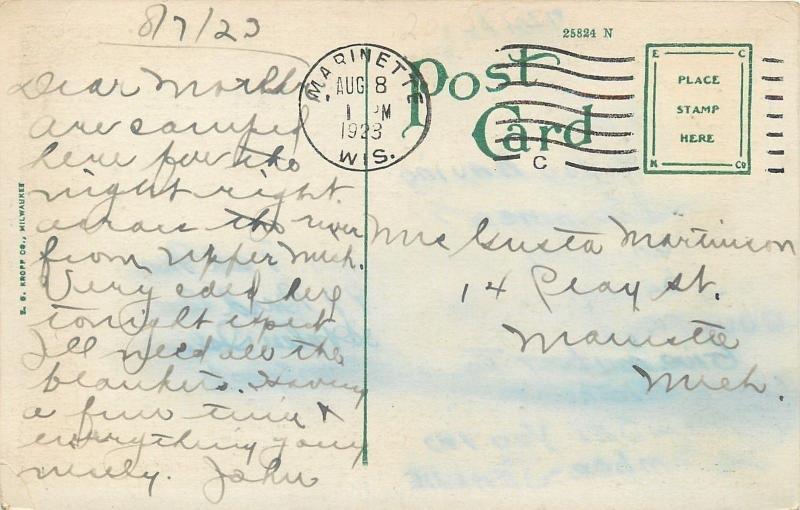 8/7/23
Dear Mother
Are camped
here for the
night right
across the river
from Upper Mich.
Very cold here
tonight expect
I'll need all the
blankets. Having
a fine time &
everything going
nicely. John
E. C. KROPP CO., MILWAUKEE
MARINETTE
AUG 8
1 PM
1923
WIS.
Post
Card
25824 N
E C
PLACE
STAMP
HERE
K CO
C
Mrs Gusta Martinson
14 Peay St.
Manistee
Mich.